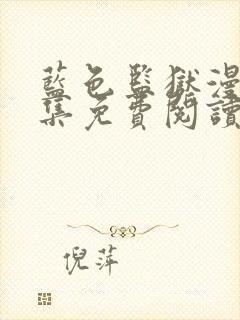 藍色監獄漫
集免費閱讀
倪萍